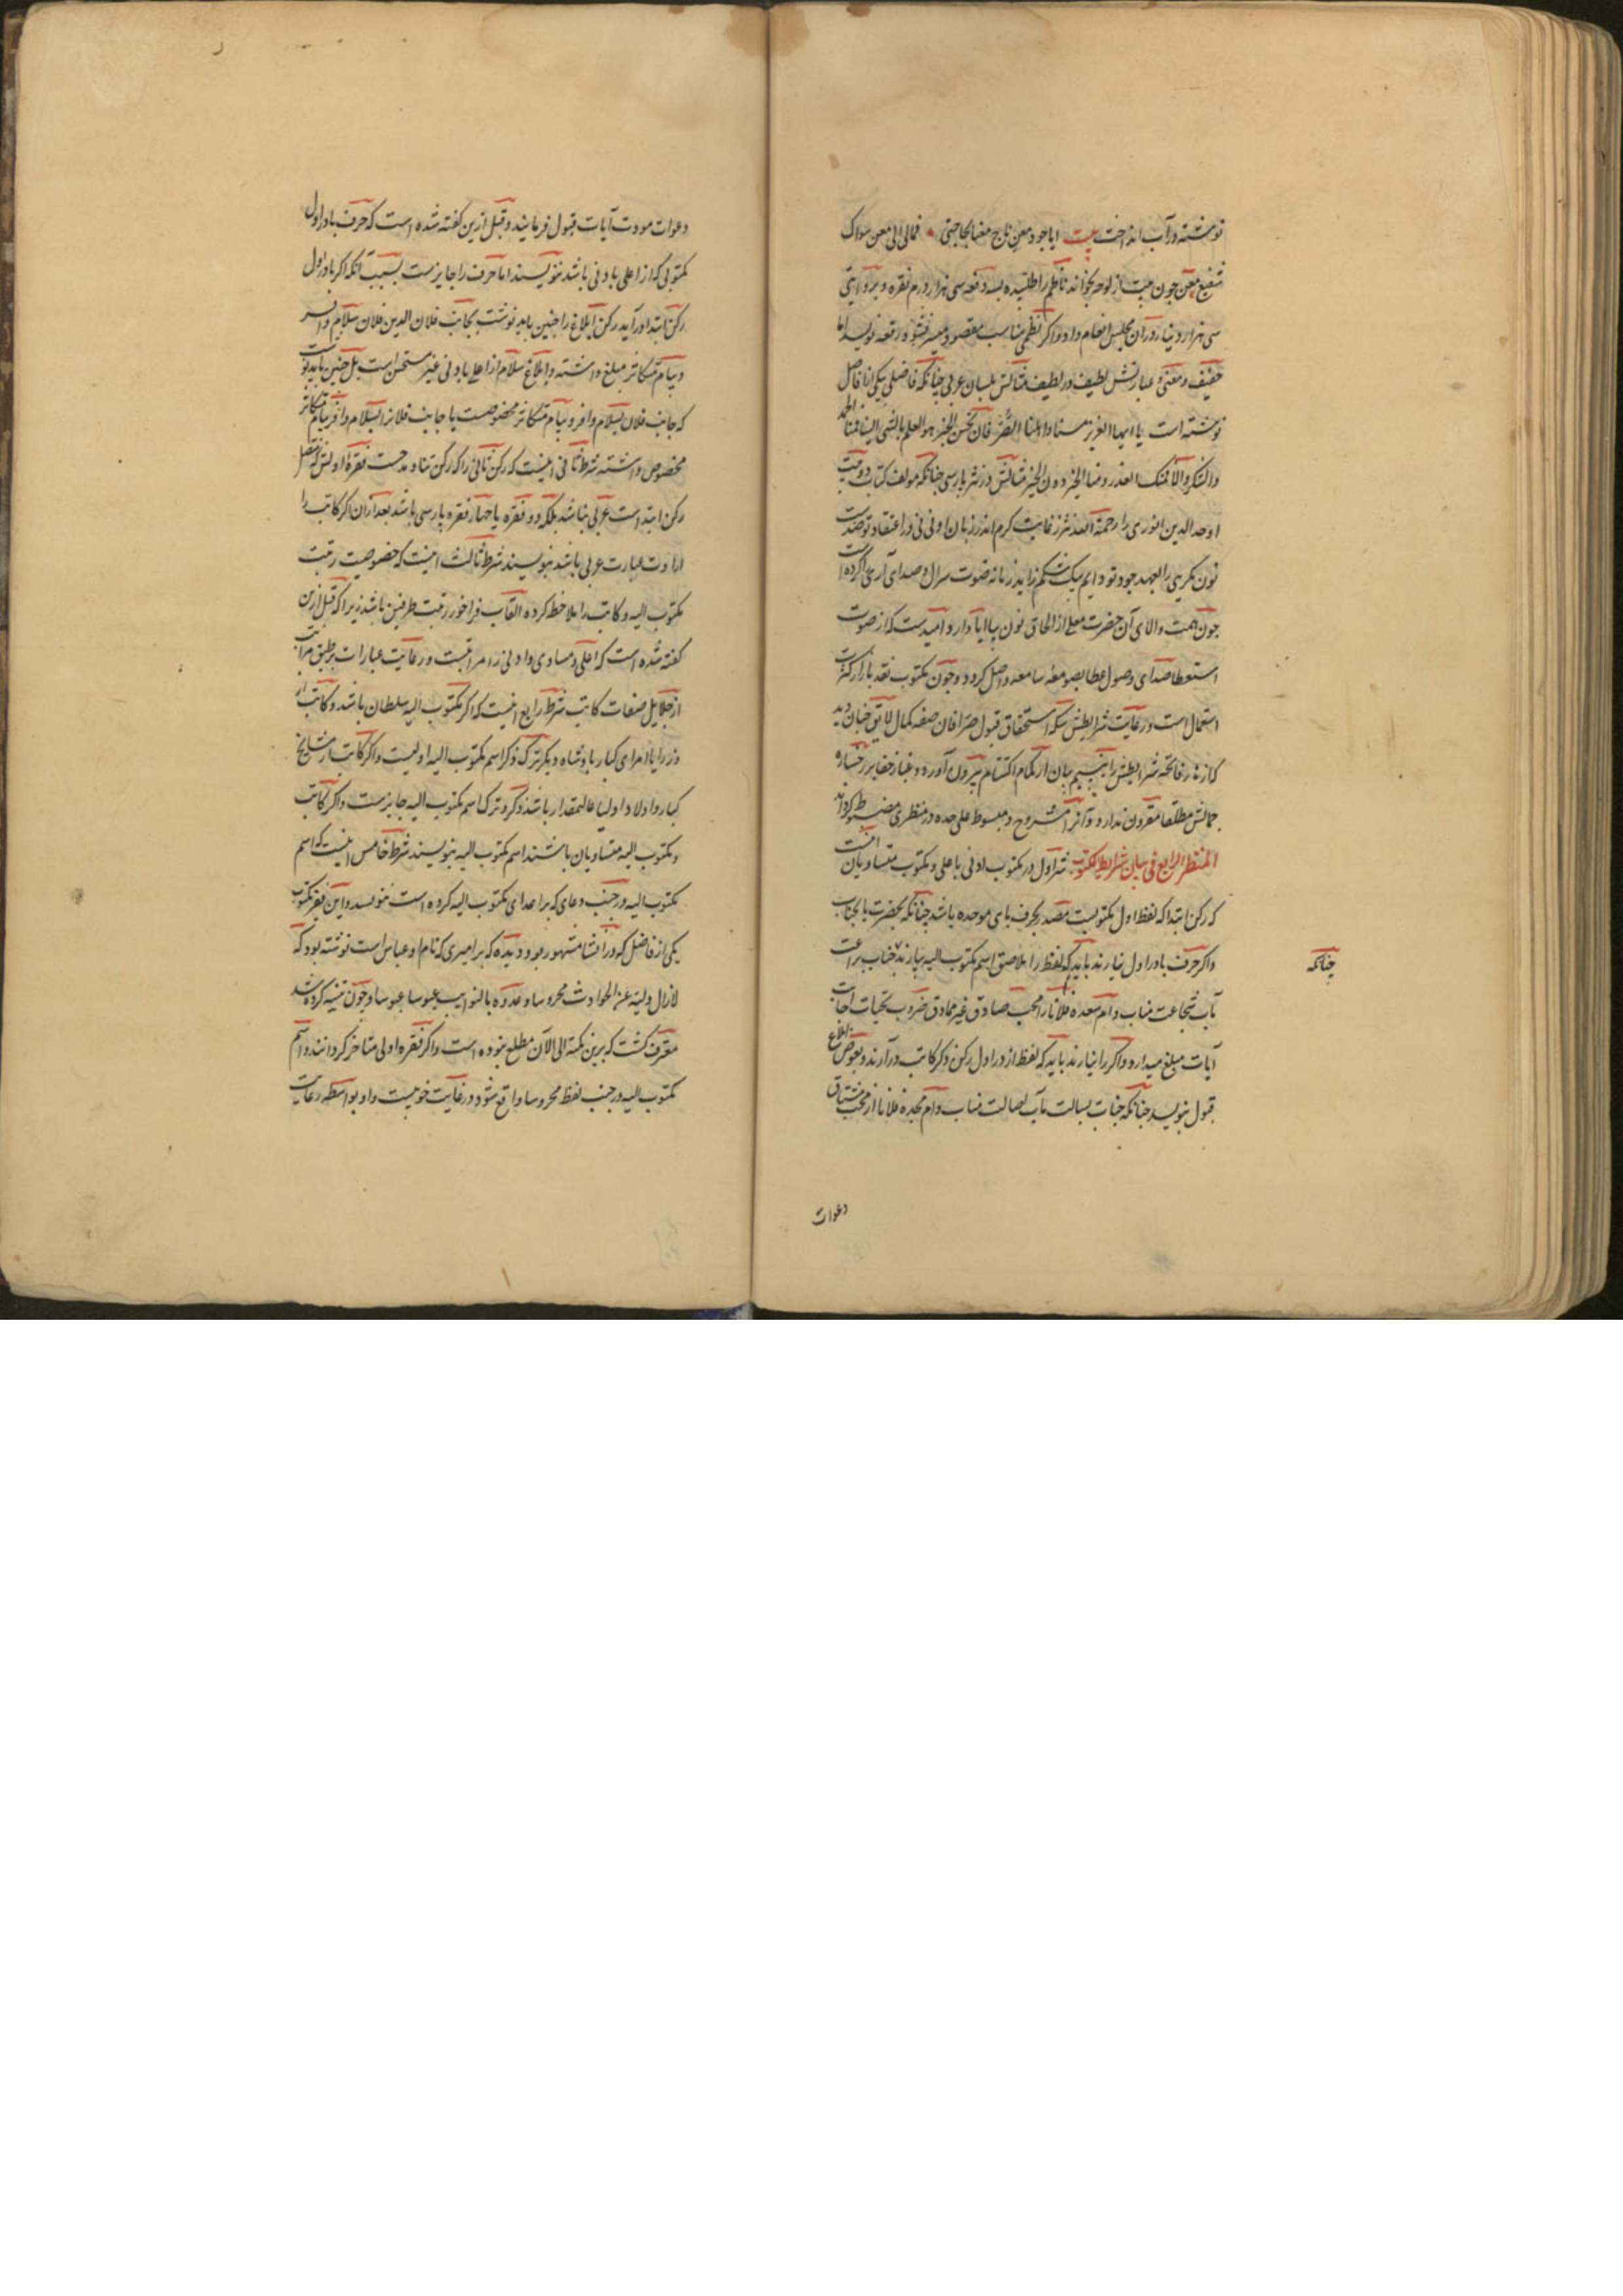 نوشته در آب انداخت بیت ایا جود معن ناج معنا بحاجتی فمالی الی معن سواک
شفیع معن چون بیت از لوحه بخواند ناظم را طلبیده بسه دفعه سی هزار درم نقره و بروایتی
سی هزار دینار در آن مجلس انعام داد و اگر نظمی مناسب مقصود میسر نشود رقعه نویسد اما
خفیف و معنی و عبارتش لطیف در لطیف مثالش بلسان عربی چنانکه فاضلی بیکی از افاضل
نوشته است یا ایها العزیز مسنا و اهلنا الضر فان تحسن الخیر هو العلم بالشی الینا فمنا الحمد
والشکر و الا فمنک العذر و منا الخیر دون الخیر مثالش در نثر پارسی چنانکه مولف کتاب دو بیت
اوحد الدین انوری را رحمة الله نثر از غایت کرم اندر زبان او نی نی در اعتقاد تو ضدیست
نون مگر بی را بعهد جود تو دایم بیک شکم زاید زمانه صوت سوال و صدای آری را کرده است
چون همت والای آن حضرت معلی از الحاق نون با یا ابا دارد امیدست که از صوت
استعطا صدای وصول عطا بصومعه سامعه واصل کردد و چون مکتوب نقد بازار کثرت
استعمال است و رعایت شرایطش سکه استحقاق قبول صرافان صفه کمال لایق چنان دید
که ازهار فاتحه شرایطش را بنسیم بیان از کمام اکتتام بیرون آورد و غبار خفا بر رخساره
جمالش مطلقا مقرون ندارد و آنرا مشروح و مبسوط علی حده در منظری مضبوط کرداند
المنظر الرابع فی بیان شرایط المکتوب شرط اول در مکتوب ادنی باعلی و مکتوب متساویان آنست
که رکن ابتدا که لفظ اول مکتوبست مصدر بحرف بای موحده باشد چنانکه بحضرت یا بجناب
و اکر حرف با در اول نیارند باید که لفظ را ملاصق اسم مکتوب الیه بیارند جناب براعت
چنانکه
مآب شجاعت مناب دام سعده فلانا را محب صادق غیر مماذق ضروب تحیات اجابت
آیات مبلغ میدارد و اکر را نیارند باید که لفظ از در اول رکن ذکر کاتب در آرند و بعوض ابلاغ
قبول بنویسد چنانکه جناب بسالت مآب اصالت مناب دام مجده فلانا از محب مشتاق
دعوات
دعوات مودت آیات قبول فرمایند و قبل ازین کفته شده است که حرف با در اول
مکتوبی که از اعلی بادنی باشد ننویسند اما حرف را جایزست بسبب آنکه اکر با در اول
رکن ابتدا در آید رکن ابلاغ را چنین باید نوشت بجانب فلان الدین فلان سلام وافر
و پیام متکاثر مبلغ داشته و ابلاغ سلام از اعلی بادنی غیر مستحسن است بل چنین باید نوشت
که جانب فلان بسلام وافر و پیام متکاثر مخصوصست یا جانب فلانرا بسلام وافر و پیام متکاثر
مخصوص داشته شرط ثانی اینست که رکن ثانی را که رکن ثنا و مدحست فقره اولش که متصل
رکن ابتدا است عربی نباشد بلکه دو فقره یا چهار فقره پارسی باشد بعد از آن اکر کاتب را
ارادت عبارت عربی باشد بنویسند شرط ثالث اینست که خصوصیت رتبت
مکتوب الیه و کاتب را ملاحظه کرده القاب فراخور رتبت طرفین باشد زیرا که قبل ازین
کفته شده است که اعلی و مساوی و ادنی را مراتبست و رعایت عبارات بر طبق مراتب
از جلایل صفات کاتب شرط رابع اینست که اکر مکتوب الیه سلطان باشد و کاتب از
وزرا یا امرای کبار یا پادشاه دیکر ترک ذکر اسم مکتوب الیه اولیست و اکر کاتب از مشایخ
کبار و اولاد اولیا عالیمقدار باشد ذکر و ترک اسم مکتوب الیه جایزست و اکر کاتب
و مکتوب الیه متساویان باشند اسم مکتوب الیه بنویسند شرط خامس اینست که اسم
مکتوب الیه در جنب دعای که بر اعدای مکتوب الیه کرده است ننویسد و این فقیر مکتوب
یکی از فاضل که در انشا مشهور بود دیده که بر امیری که نام او عباس است نوشته بود که
لازال ولیه عن الحوادث محروسا و عدوه بالنوایب عبوسا عبوسا و چون تنبیه کرده شد
معترف کشت که برین نکته الی الآن مطلع نبوده است و اکر فقره اولی متاخر کردانند و اسم
مکتوب الیه در جنب لفظ محروسا واقع شود در غایت خوبیست و او بواسطه رعایت